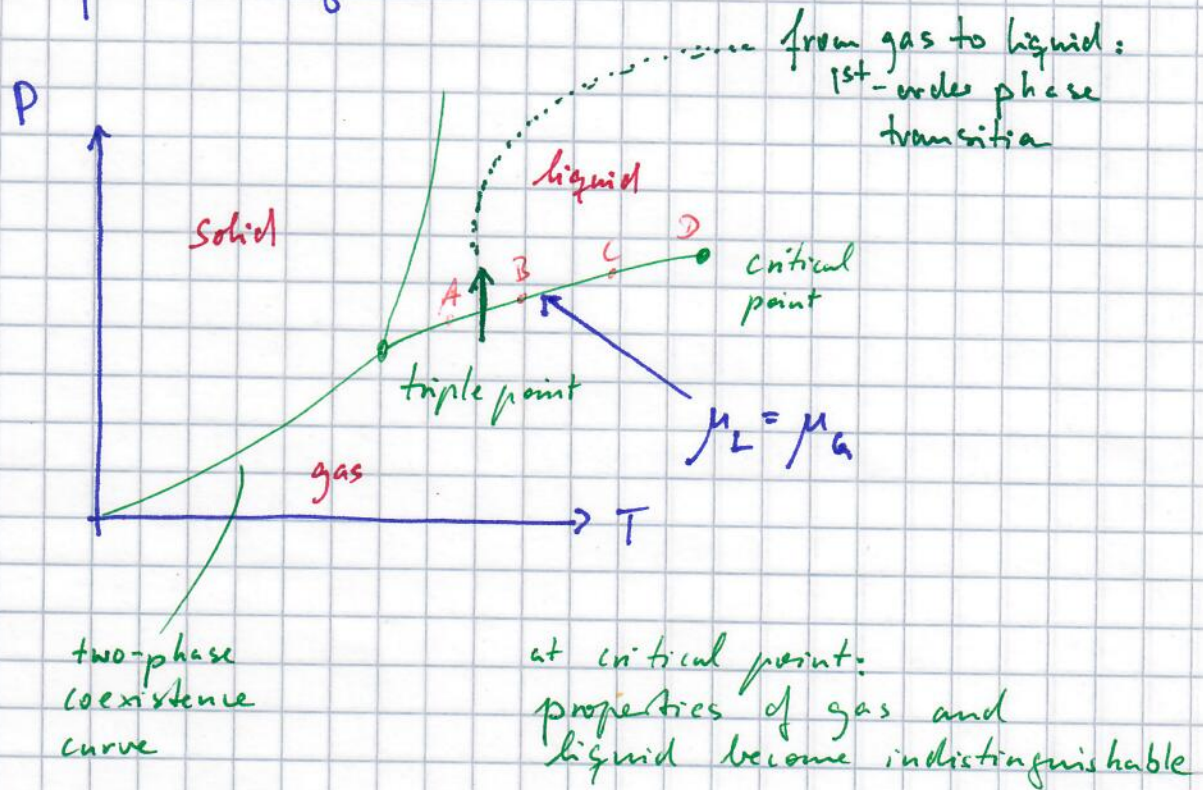 from gas to liquid:
1st-order phase
transition
P
liquid
solid
D
C
B
A
critical
point
triple point
μL = μG
gas
T
two-phase
coexistence
curve
at critical point:
properties of gas and
liquid become indistinguishable